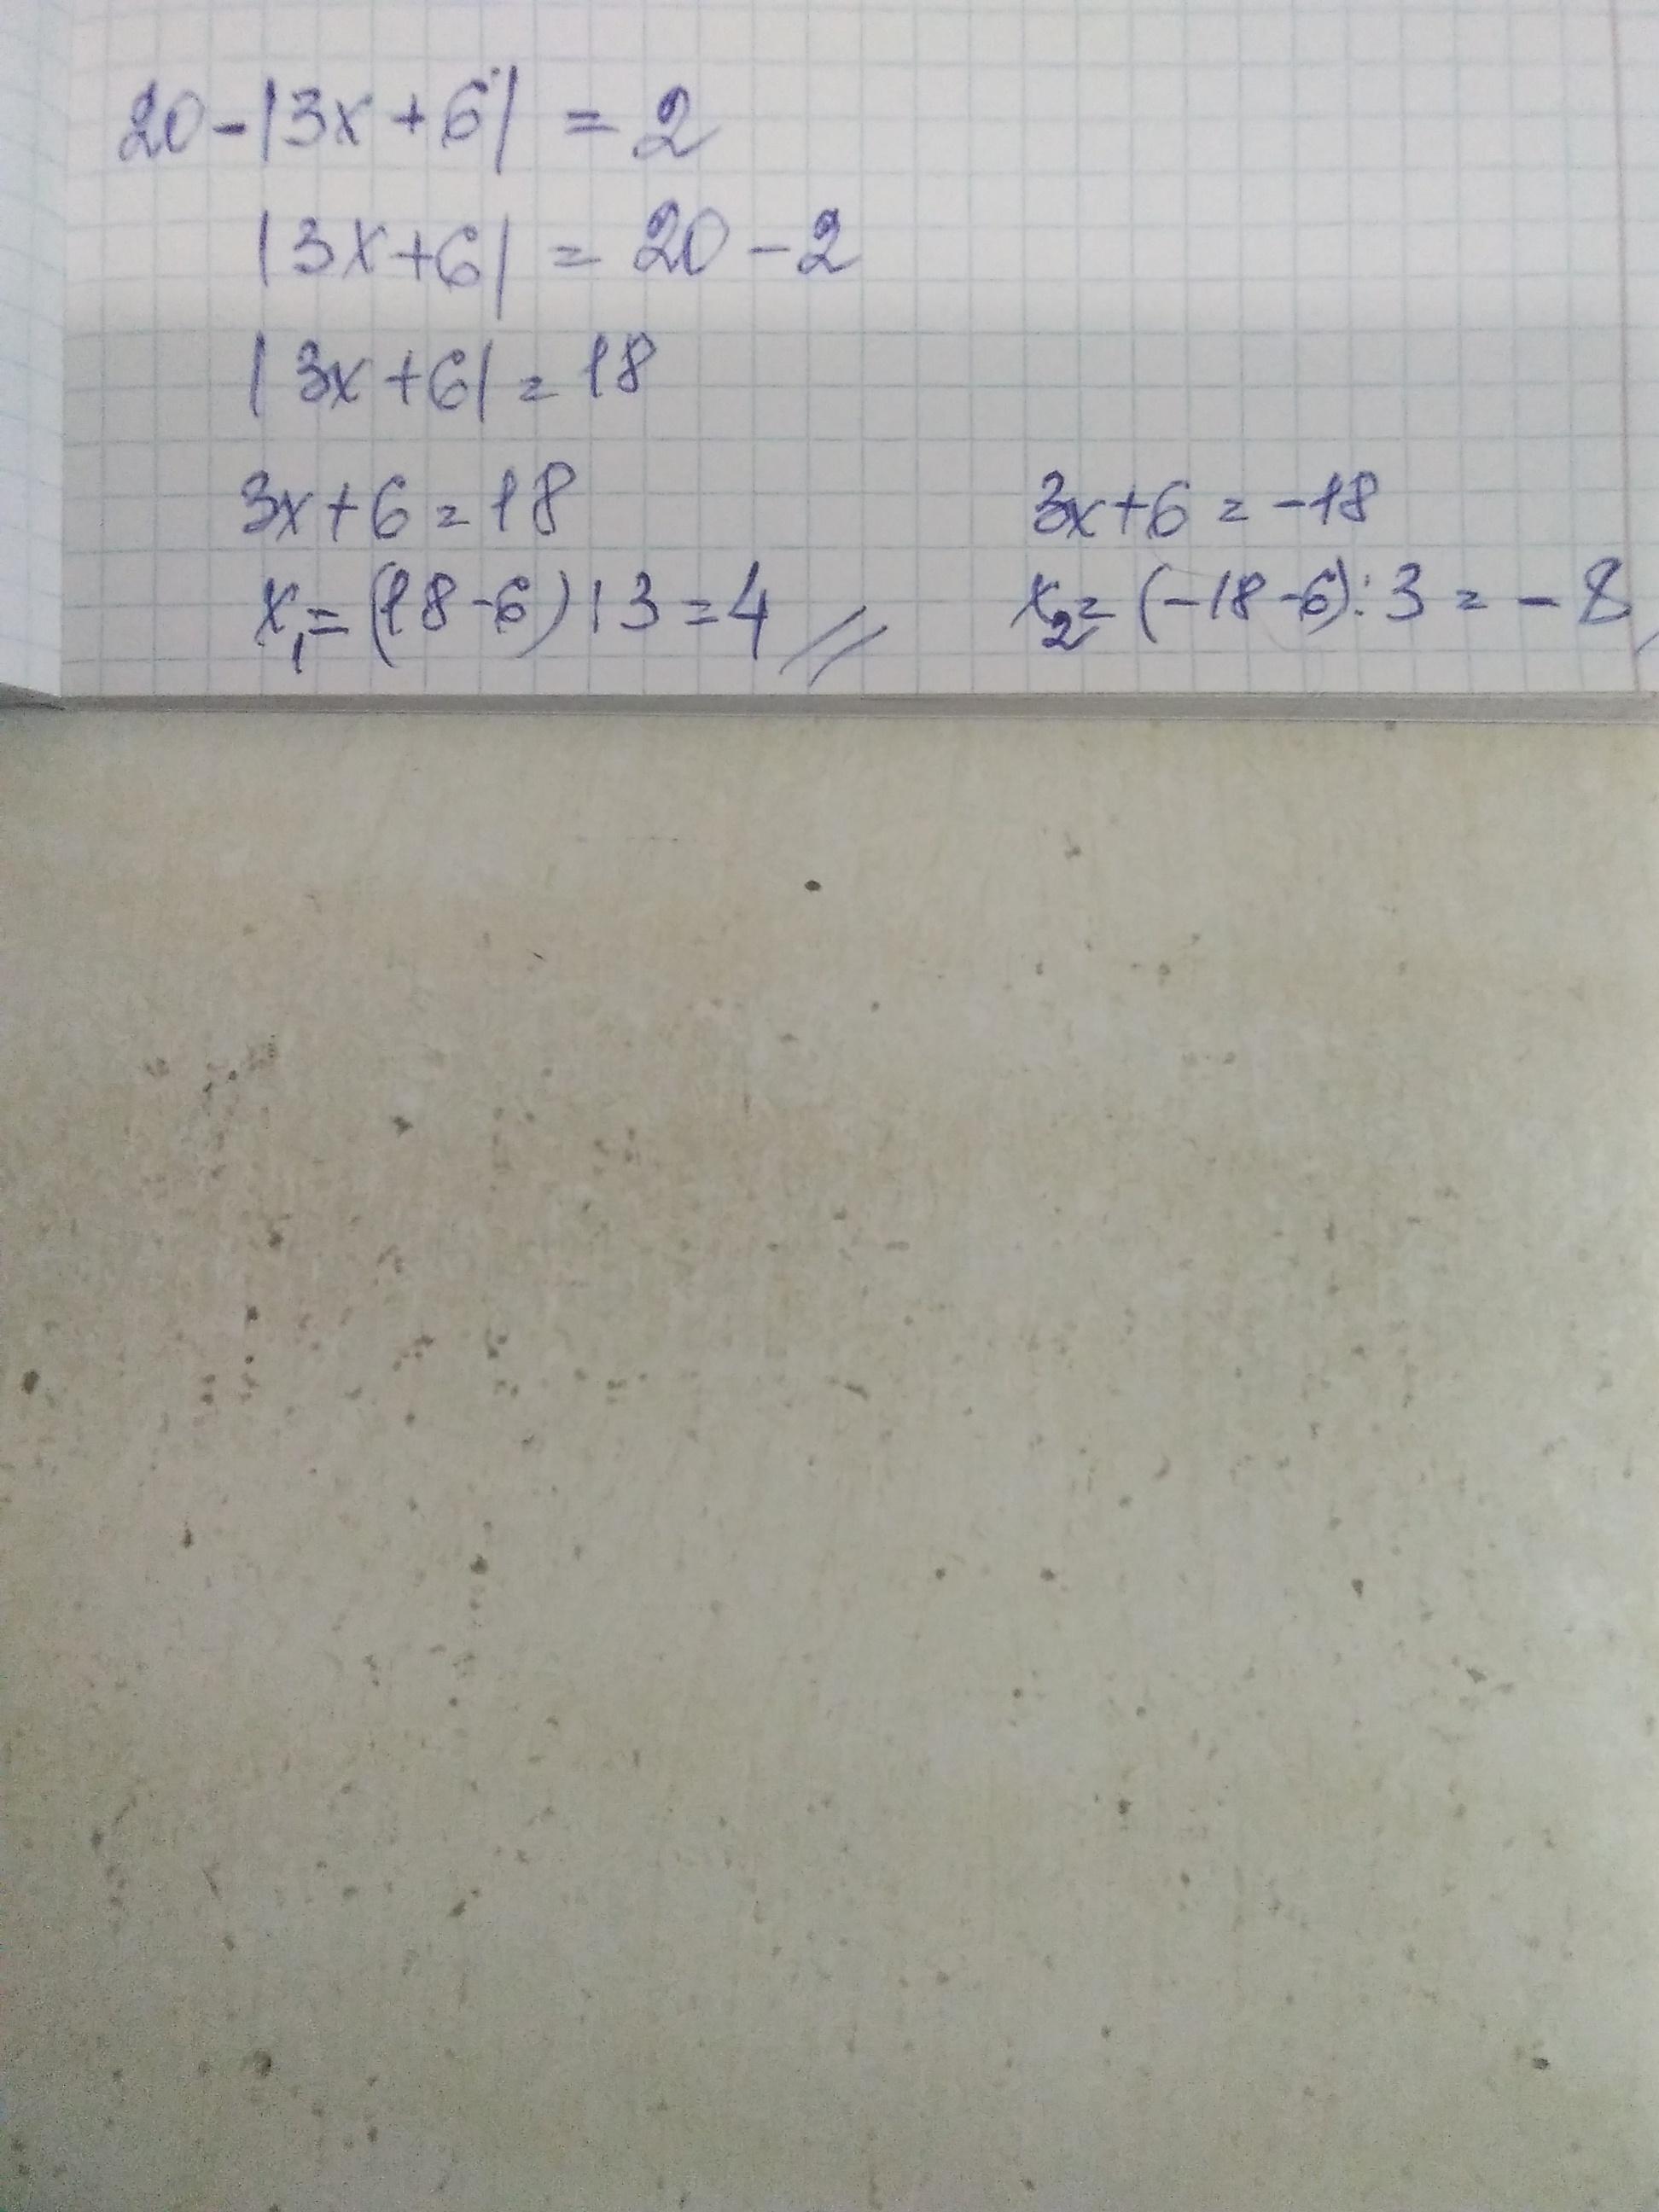 20-|3x+6| = 2
|3x+6| = 20-2
|3x+6| = 18
3x+6=18 3x+6 = -18
x₁=(18-6):3=4 x₂=(-18-6):3=-8